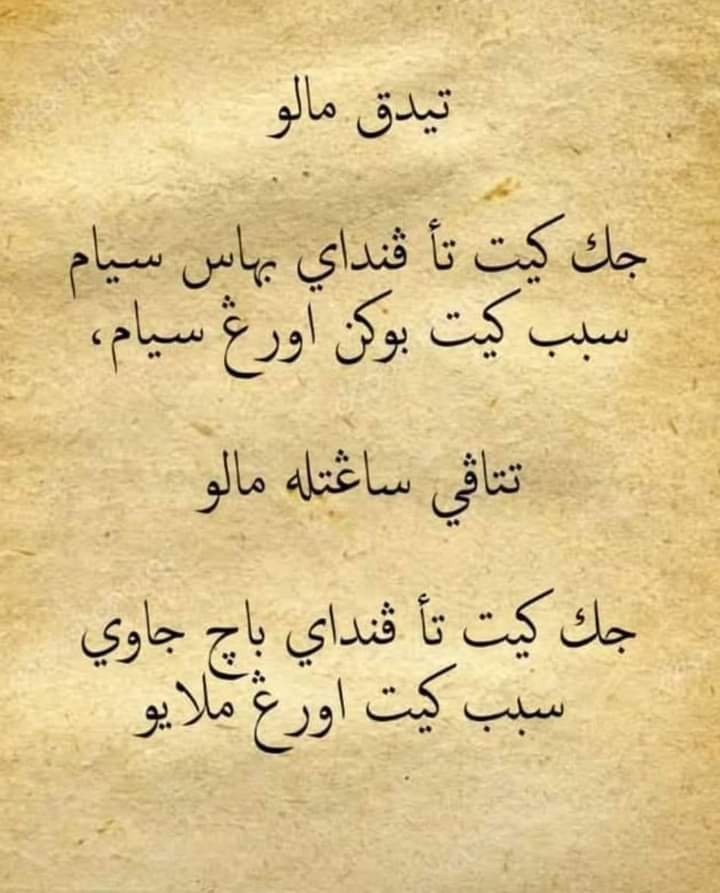 تيدق مالو
جك كيت تأ ڤنداي بهاس سيام
سبب كيت بوكن اورڠ سيام،
تتاڤي ساڠتله مالو
جك كيت تأ ڤنداي باچ جاوي
سبب كيت اورڠ ملايو